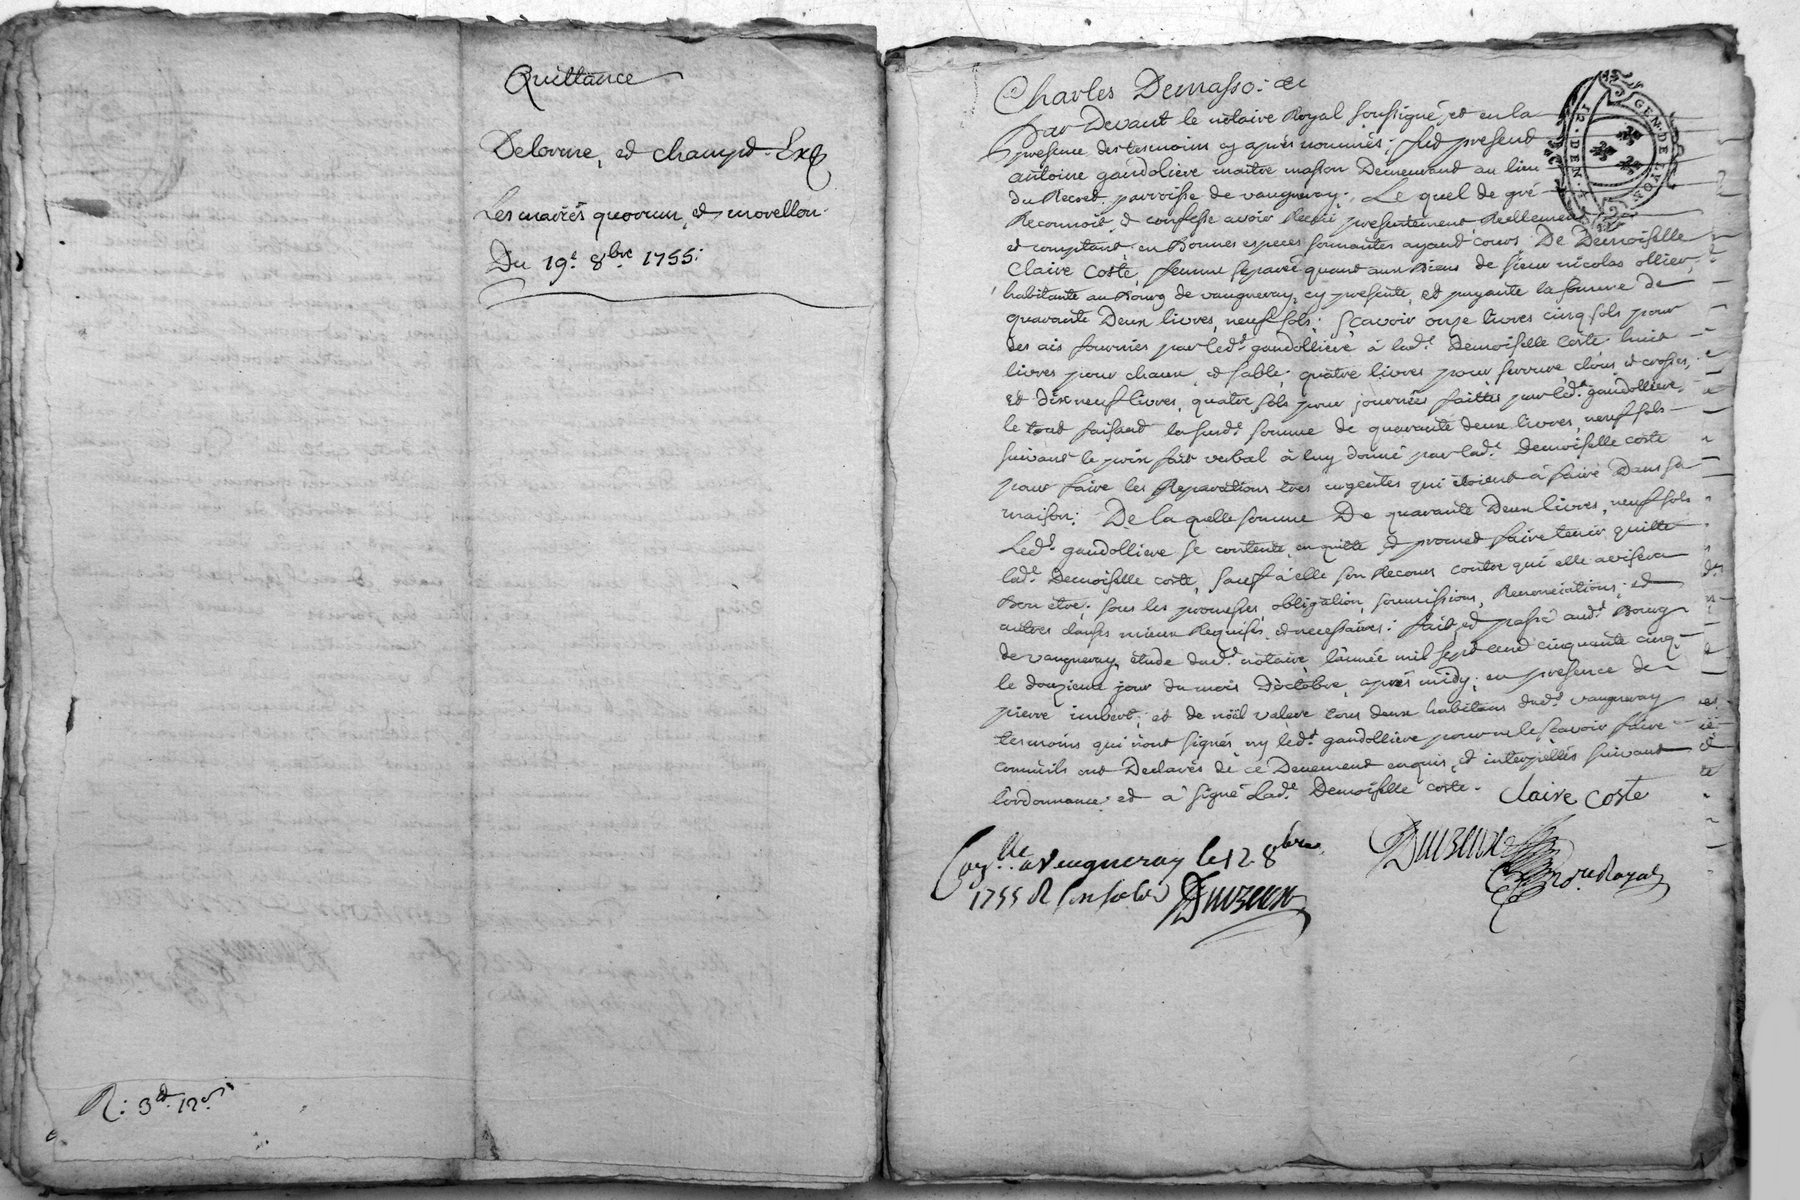 Quittance
Delorme, et champt. Exp
Les mariés quorum, et morellon.
Du 19e. 8bre 1755:
R: 3lt. 12s.
Charles Demasso: &c
Par Devant le notaire Royal soussigné, et en la
presence des tesmoins cy aprés nommés; fut present
antoine gaudoliere maitre masson Demeurant au lieu
du Recret parroisse de vaugneray; Le quel de gré
Reconnoit, et confesse avoir Receu presentement Reellement
et comptant en Bonnes especes sonnantes ayant cours, De Demoiselle
Claire Coste, femme separée quant aux Biens de sieur nicolas ollier,
habitante au Bourg de vaugneray, cy presente, et payante la somme de
quarante Deux livres, neuf sols; sçavoir onze livres cinq sols pour
des ais fournies par ledt. gaudolliere à lade. Demoiselle Coste huit
livres pour chaux, et sable; quatre livres pour serrure clous et crosses,
et dix neuf livres, quatre sols pour journées faittes par ledt. gaudolliere,
le tout faisant la susde. somme de quarante deux livres, neuf sols
suivant le prix fait verbal à luy donné par lade. Demoiselle coste
pour faire les Reparations tres urgentes qui étoient à faire Dans sa
maison; De la quelle somme De quarante Deux livres, neuf sols
Ledt. gaudolliere se contente, en quitte, et promet faire tenir quitte
lade. Demoiselle coste, sauf à elle son Recours contre qui elle avisera
Bon être; sous les promesses obligation, soumissions, Renonciations, et
autres clauses mieux Requises, et necessaires; fait, et passé audt. Bourg
de vaugneray étude dudt. notaire, l'année mil sept cent cinquante cinq
le douzieme jour du mois D'octobre, aprés midy; en presence de
pierre imbert, et de noël valere tous deux habitans dudt. vaugneray
tesmoins qui n'ont signés, ny ledt. gaudolliere pour ne le sçavoir faire
comm'ils ont Declarés de ce Deuement enquis, et interpellés suivant
l'ordonnance; et a signé lade. Demoiselle coste.
Claire Coste
a Vaugneray le 12 8bre
1755 R six sols
nore Royal
GEN. DE LYON